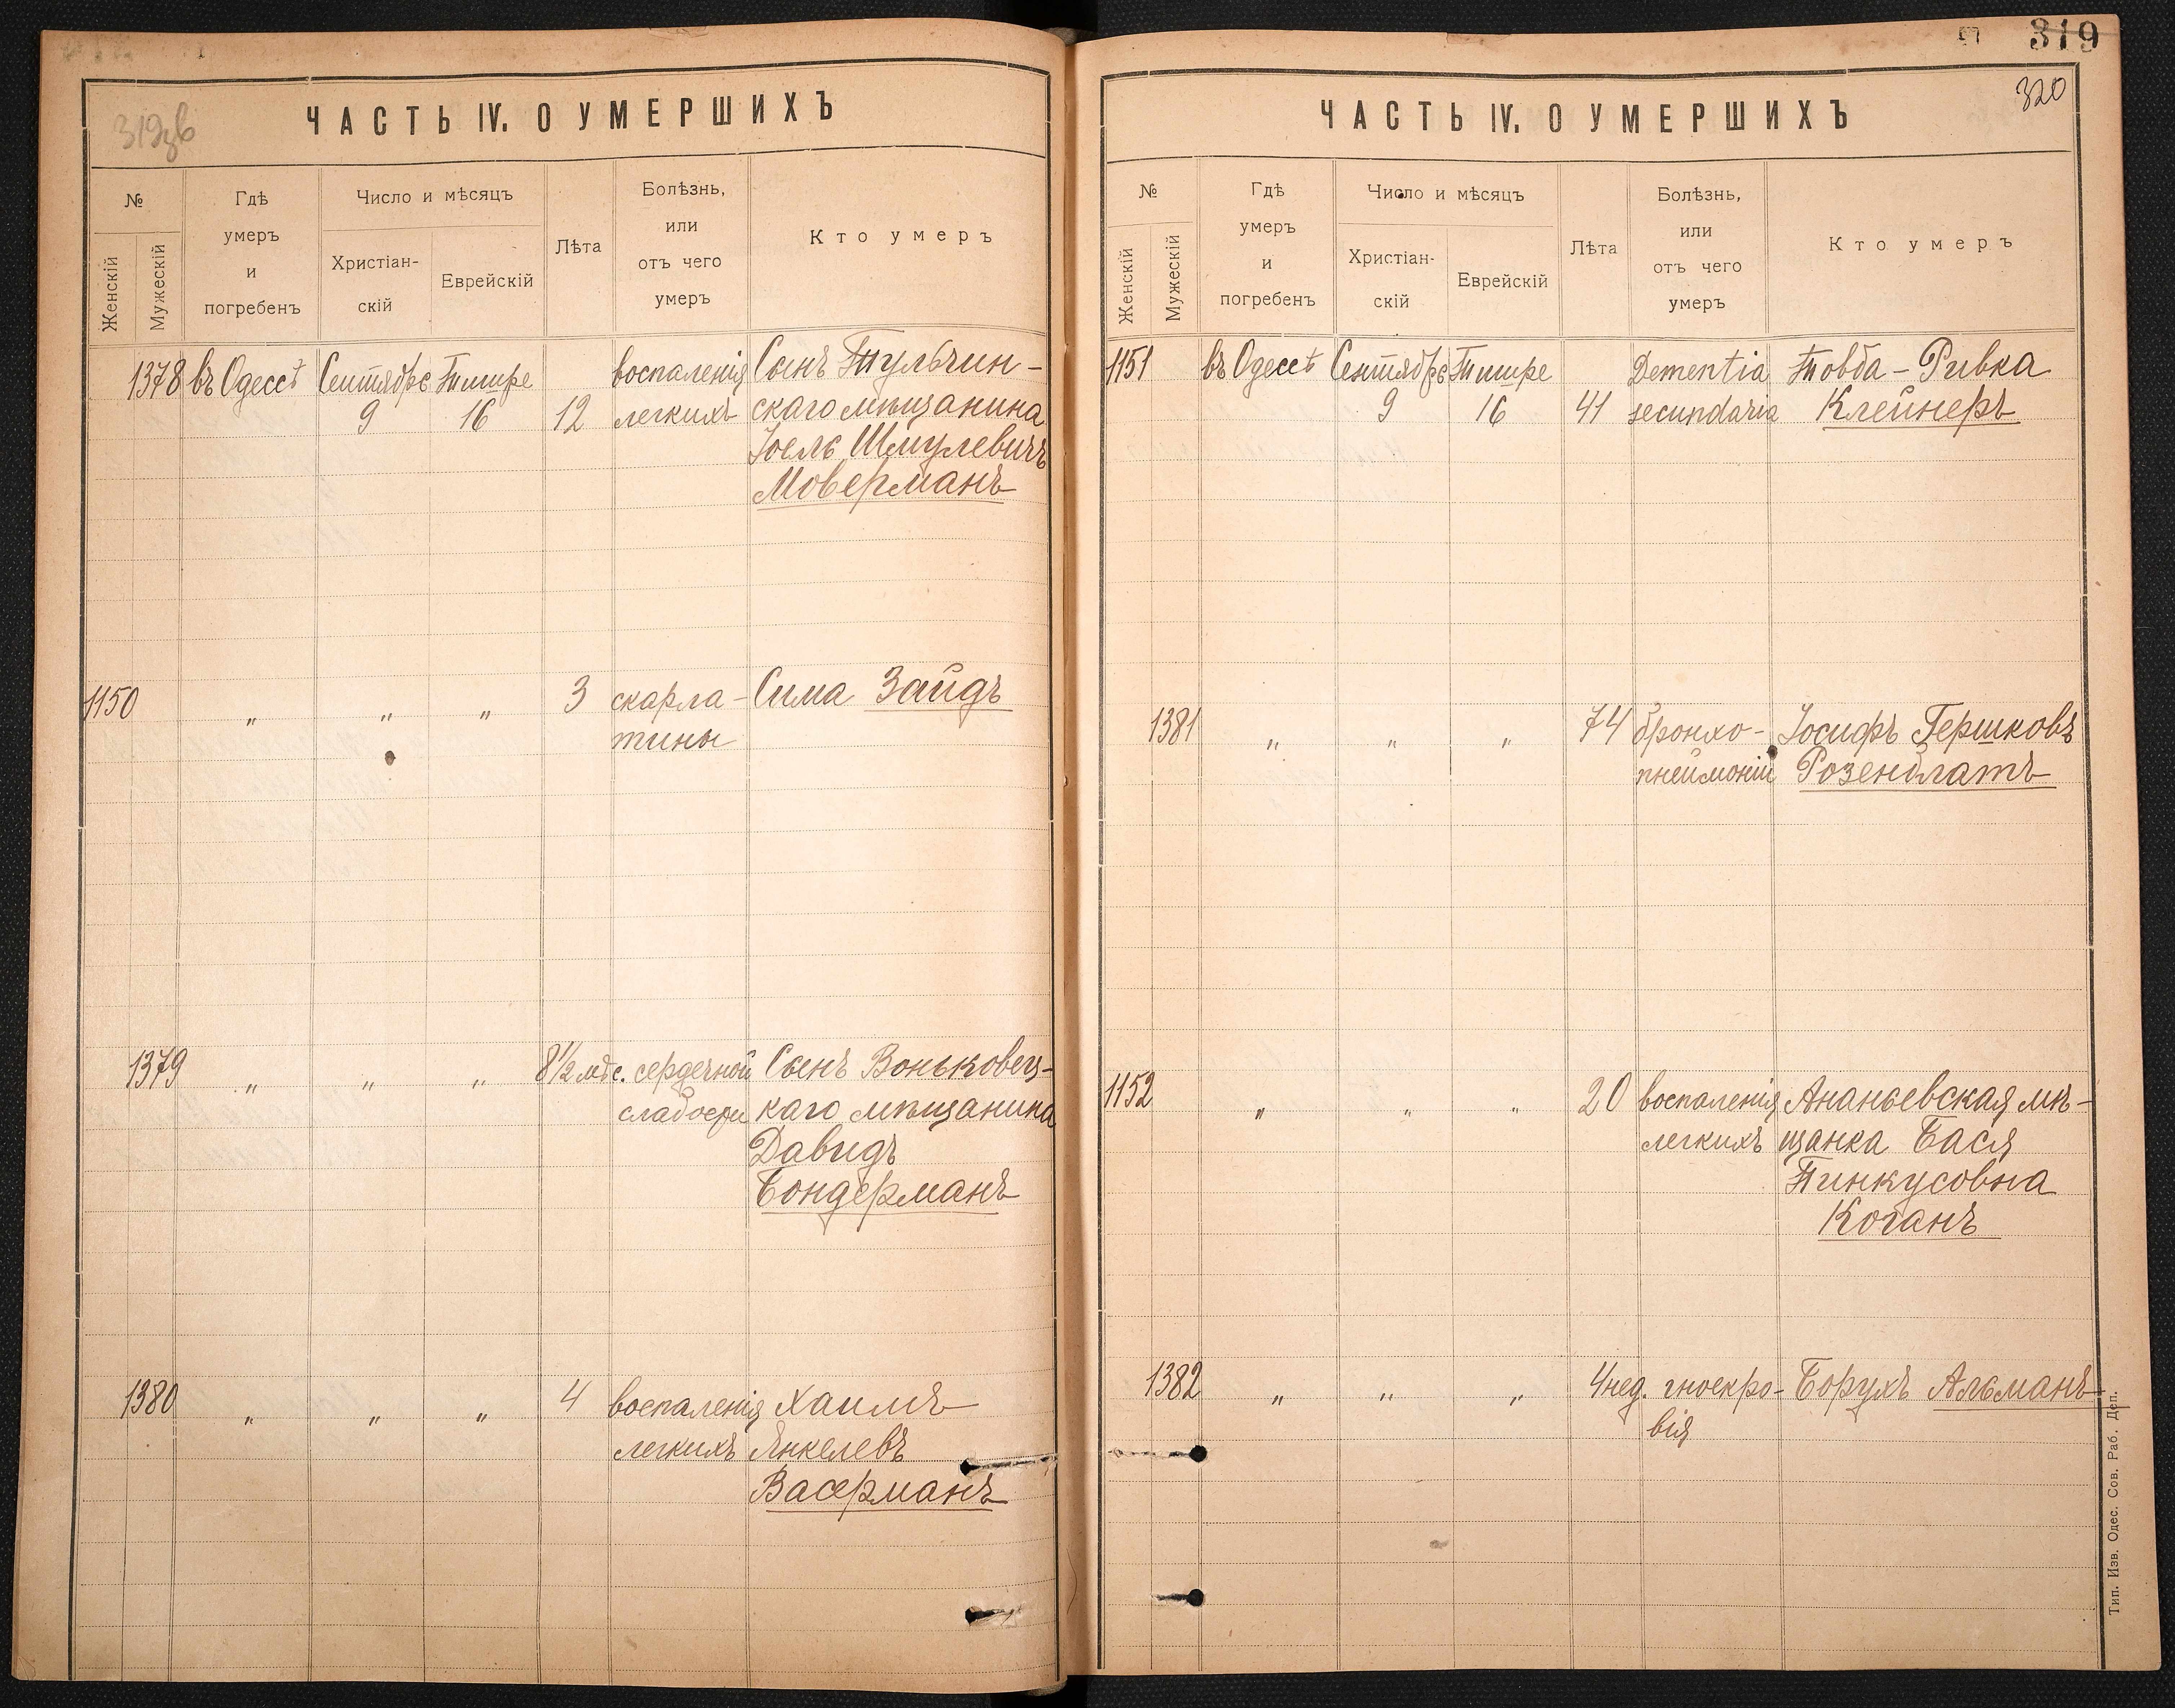 319зв
ЧАСТЬ IV. О УМЕРШИХЪ
№
Женскій
Мужескій
Гдѣ
умеръ
и
погребенъ
Число и мѣсяцъ
Христіан-
скій
Еврейскій
Лѣта
Болѣзнь,
или
отъ чего
умеръ
Кто умеръ
1378 въ Одессѣ Сентября Тишре воспаленія Сынъ Тульчин-
9 16 12 легкихъ скаго мѣщанина
Іоель Шмулевичъ
Моверманъ
1150 " " " 3 скарла- Сима Зайдъ
тины
1379 " " " 8½ мѣс. сердечной Сынъ Воньковец-
слабости каго мѣщанина
Давидъ
Бондерманъ
1380 " " " 4 воспаленія Хаимъ
легкихъ Янкелевъ
Васерманъ
319
320
ЧАСТЬ IV. О УМЕРШИХЪ
№
Женскій
Мужескій
Гдѣ
умеръ
и
погребенъ
Число и мѣсяцъ
Христіан-
скій
Еврейскій
Лѣта
Болѣзнь,
или
отъ чего
умеръ
Кто умеръ
1151 въ Одессѣ Сентября Тишре Dementia Товба-Ривка
9 16 41 secundaria Клейнеръ
1381 " " " 74 бронхо- Іосифъ Гершковъ
пнеймоніи Розенблатъ
1152 " " " 20 воспаленія Ананьевская мѣ-
легкихъ щанка Бася
Пинкусовна
Коганъ
1382 " " " 4 нед. гноекро- Борухъ Альманъ
вія
Тип. Изв. Одес. Сов. Раб. Деп.